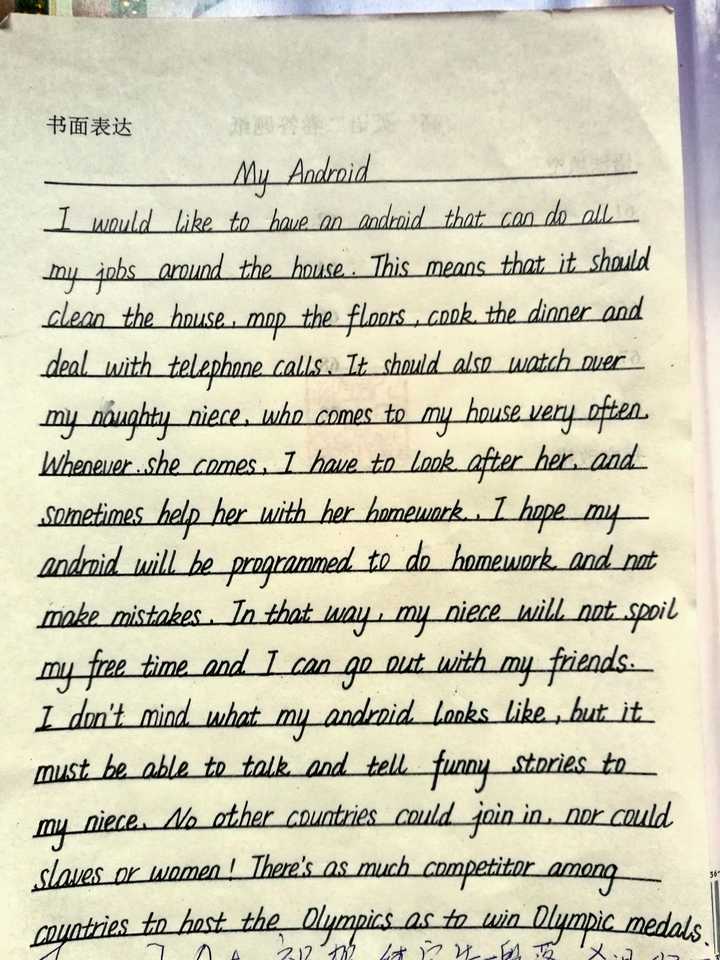 书面表达
My Android
I would like to have an android that can do all
my jobs around the house. This means that it should
clean the house, mop the floors, cook the dinner and
deal with telephone calls. It should also watch over
my naughty niece, who comes to my house very often.
Whenever she comes, I have to look after her, and
sometimes help her with her homework. I hope my
android will be programmed to do homework and not
make mistakes. In that way, my niece will not spoil
my free time and I can go out with my friends.
I don't mind what my android looks like, but it
must be able to talk and tell funny stories to
my niece. No other countries could join in, nor could
slaves or women! There's as much competitor among
countries to host the Olympics as to win Olympic medals.